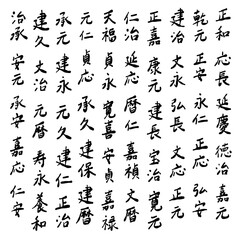 正和 応長 延慶 徳治 嘉元
乾元 正安 永仁 正応 弘安
建治 文永 弘長 文応 正元
正嘉 康元 建長 宝治 寛元
仁治 延応 暦仁 嘉禎 文暦
天福 貞永 寛喜 安貞 嘉禄
元仁 貞応 承久 建保 建暦
承元 建永 元久 建仁 正治
建久 文治 元暦 寿永 養和
治承 安元 承安 嘉応 仁安